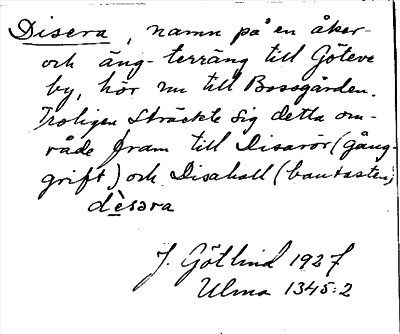 Disera, namn på en åker-
och äng-terräng till Göteve
by, hör nu till Bossgården.
Troligen sträckte sig detta om-
råde fram till Disarör (gång-
grift) och Disahall (bautasten)
dèsəra
J. Götlind 1927
Ulma 1345:2